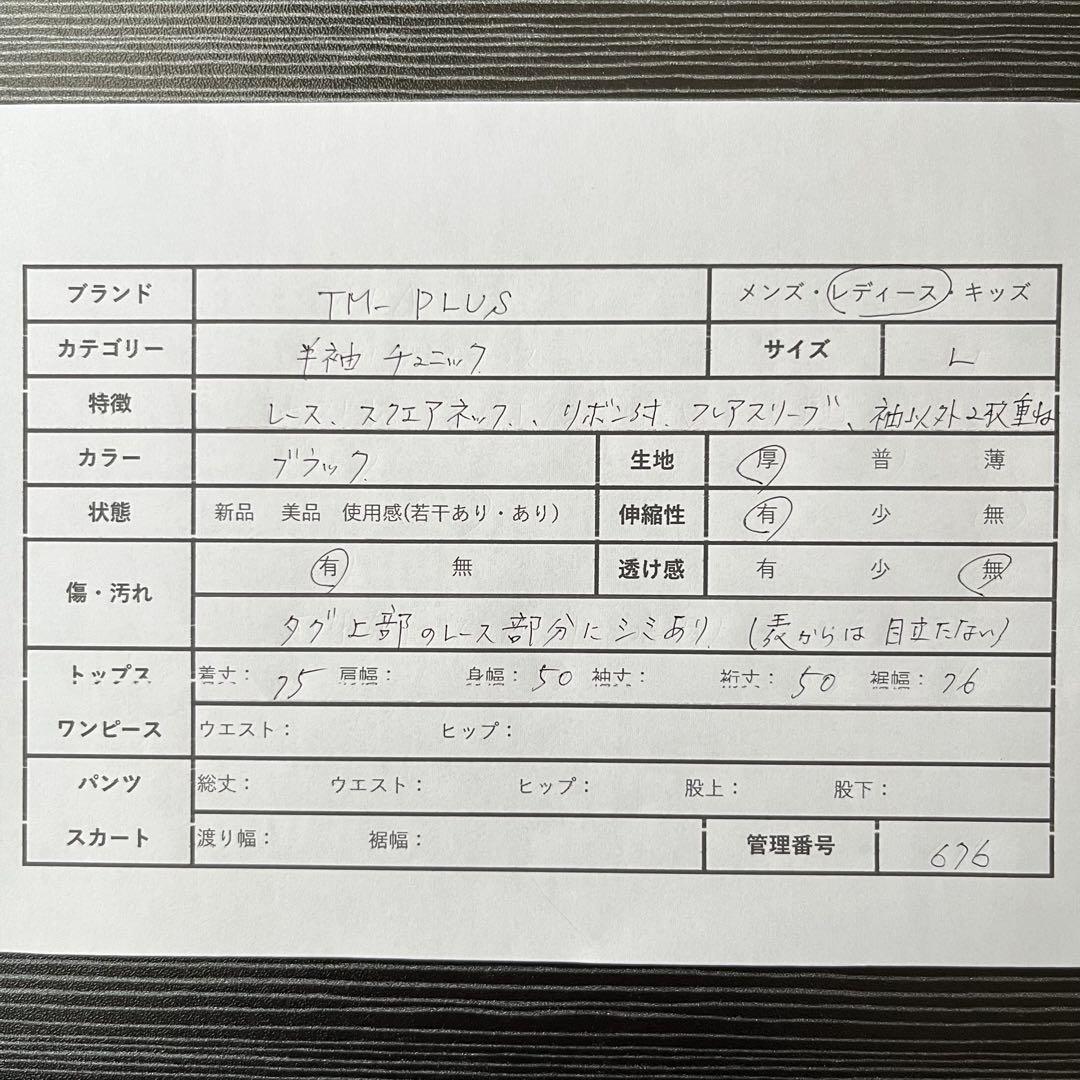 ブランド TM- PLUS メンズ・レディース・キッズ
カテゴリー 半袖 チュニック サイズ L
特徴 レース、スクエアネック、リボン付、フレアスリーブ、袖以外2枚重ね
カラー ブラック 生地 厚 普 薄
状態 新品 美品 使用感(若干あり・あり) 伸縮性 有 少 無
傷・汚れ 有 無 透け感 有 少 無
タグ上部のレース部分にシミあり(表からは目立たない)
トップス 着丈: 75 肩幅: 身幅: 50 袖丈: 裄丈: 50 裾幅: 76
ワンピース ウエスト: ヒップ:
パンツ 総丈: ウエスト: ヒップ: 股上: 股下:
スカート 渡り幅: 裾幅: 管理番号 676